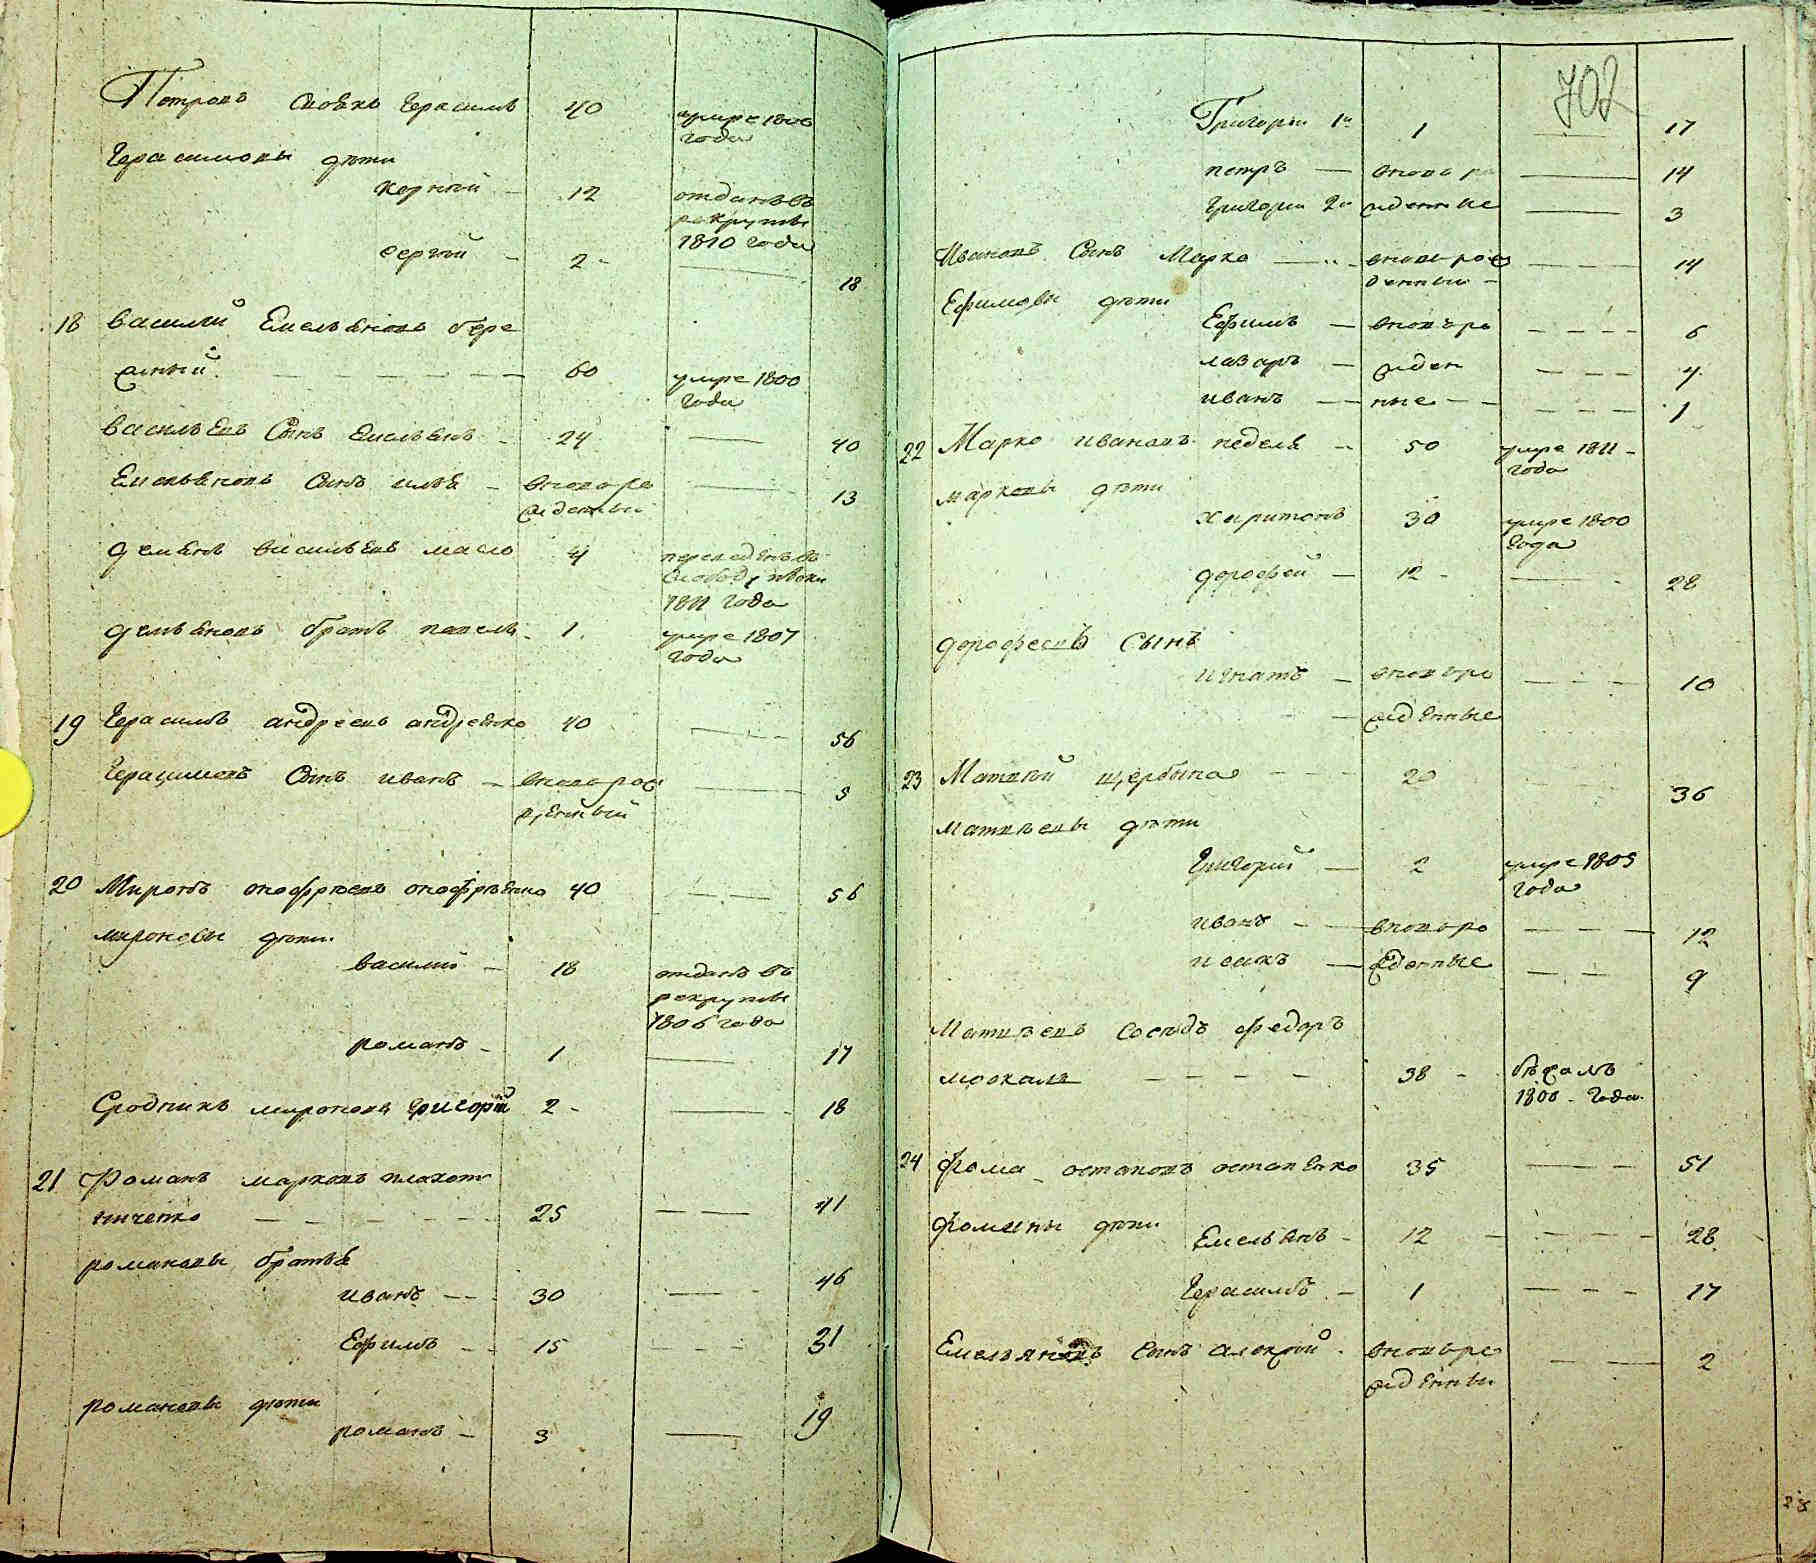 Петровъ своякъ Герасимъ 40 умре 1806
года
Герасимовы дѣти
Корнѣй – 12 отданъ въ
рекруты
1810 года
Сергѣй – 2 – 18
18 Василий Емельяновъ бере
жный – 60 умре 1800
года
Васильевъ Сынъ Емельянъ – 24 — 40
Емельяновъ Сынъ илья – вновь ро — 13
жденный
Демьянъ Васильевъ масло 4 переведенъ въ
слободу
1811 года
Демьяновъ братъ павелъ – 1 умре 1807
года
19 Герасимъ андреевъ андреенко 40 — 56
Герасимовъ Сынъ иванъ – вновь рож — 5
денный
20 Миронъ онофрѣевъ онофрѣенко 40 — 56
мироновы дѣти
василий – 18 отданъ въ
рекруты
1806 года
романъ – 1 — 17
Сродникъ мироновъ григорій 2 – — 18
21 Романъ марковъ плахот
ниченко — 25 — 41
романовы братья
иванъ — 30 — 46
Ефимъ – 15 — 31
романовы дѣти
романъ – 3 — 19
702
Григорій 1й 1 — 17
петръ — вновь ро — 14
Григорій 2й жденные — 3
Ивановъ Сынъ Марко — вновь рож — 14
денный –
Ефимовы дѣти
Ефимъ — вновь ро — 6
лазарь — жден — 4
иванъ — ные — 1
22 Марко ивановъ неделя – 50 умре 1811 –
года
марковы дѣти
харитонъ 30 умре 1800
года
дорофей — 12 – — 28
дорофеевъ сынъ
игнатъ – вновь ро — 10
– жденные
23 Матвѣй щербина — 20 — 36
матвѣевы дѣти
Григорий — 2 умре 1805
года
иванъ — вновь ро — 12
исакъ — жденные — 9
Матвѣевъ сосѣдъ федоръ
москаль — 38 – бѣжалъ
1800 – года
24 фома остаповъ остапенко 35 — 51
фомины дѣти
Емельянъ – 12 — 28
Герасимъ – 1 — 17
Емельяновъ сынъ алексѣй – вновь ро — 2
жденный